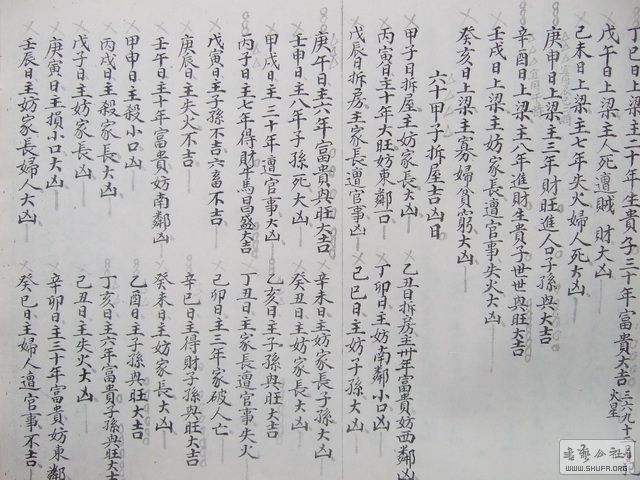 丁巳日上梁主二十年生貴子三十年富貴大吉 三六九十二
火星
戊午日上梁主人死遭賊財大凶
己未日上梁主七年失火婦人死大凶
庚申日上梁主三年財旺進人口子孫興旺大吉
辛酉日上梁主八年進財生貴子世世興旺大吉
壬戌日上梁主妨家長遭官事失火大凶
癸亥日上梁主寡婦貧窮大凶
六十甲子拆屋吉凶日
甲子日拆屋主妨家長大凶
乙丑日拆房主卅年富貴妨西鄰凶
丙寅日主十年大旺妨東鄰口
丁卯日主妨南鄰小口凶
戊辰日拆房主家長遭官事凶
己巳日主妨子孫大凶
庚午日主六年富貴興旺大吉
辛未日主妨家長子孫大凶
壬申日主八年子孫死大凶
癸丑日主妨家長大凶
甲戌日主三十年遭官事大凶
乙亥日主子孫興旺大吉
丙子日主七年得財牛馬昌盛大吉
丁丑日主家長遭官事失火
戊寅日主子孫不吉六畜不吉
己卯日主三年家破人亡
庚辰日主失火不吉
辛巳日主得財子孫興旺大吉
壬午日主十年富貴妨南鄰凶
癸未日主妨家長大凶
甲申日主殺小口凶
乙酉日主子孫興旺大吉
丙戌日主殺家長凶
丁亥日主六年富貴子孫興旺大吉
戊子日主妨家長凶
己丑日主失火大凶
庚寅日主損小口大凶
辛卯日主三十年富貴妨東鄰
壬辰日主妨家長婦人大凶
癸巳日主婦人遭官事不吉
書藝公社
WWW.SHUFA.ORG